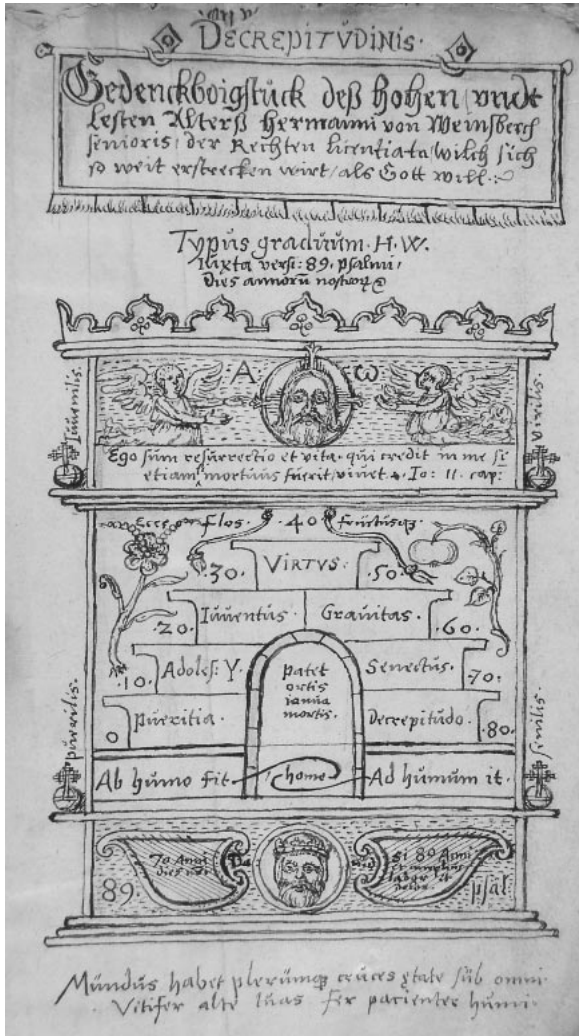 DECREPITVDINIS.
Gedenckboigstück deß hohen vndt
lesten Alterß Hermanni von Weinsberch
senioris, der Rechten licentiata, wilch sich
so weit erstrecken wirt, als Gott will.
Typus graduum. H. W.
Iuxta versi: 89. psalmi,
dies annorū nostrorū
A ω
Iuvenilis.
Virilis.
Ego sum resurrectio et vita. qui credit in me
etiam mortuus fuerit, vivet. Io: 11. cap:
Ecce flos. 40. fructusq3.
.30. VIRTVS. 50.
.20. Iuventus Gravitas. .60.
.10. Adoles: Y. Senectus. .70.
patet
ortis
ianua
mortis.
0 Pueritia. Decrepitudo. .80.
puerilis.
senilis.
Ab humo fit home Ad humum it.
70 Anni
dies
Si 80 Anni
labor et
dolor.
89 psal
Mundus habet plerumq3 cruces ętate sub omni.
Vitifer alte luas. Fer pacienter humi.